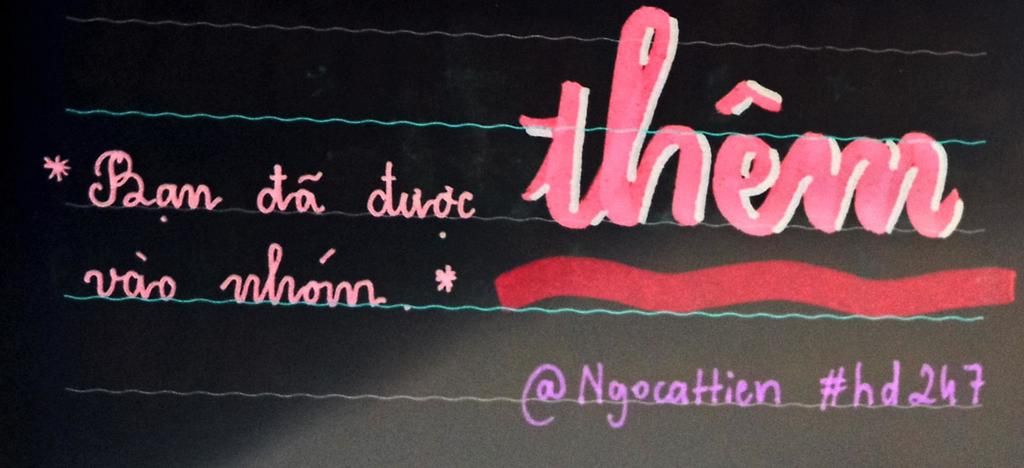 * Bạn đã được thêm
vào nhóm *
@Ngocattien #hd247